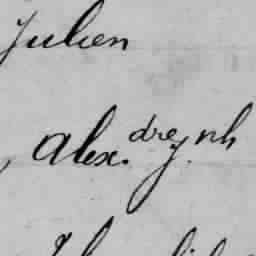 Julien
, Alex. dreynh